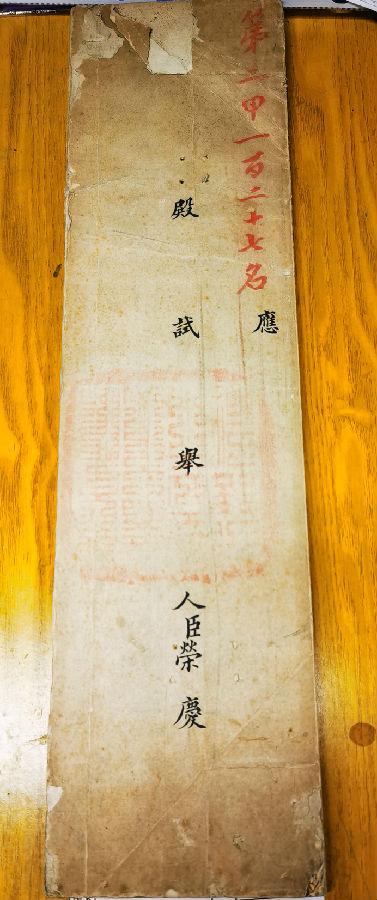 第二甲一百二十七名
應
殿試舉人臣榮慶